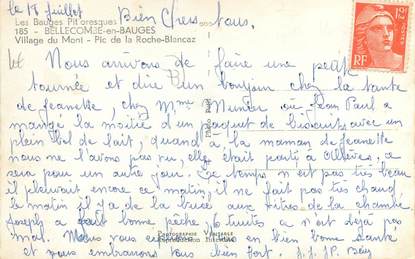 le 18 juillet
Bien Chers tous.
Les Bauges Pittoresques
185 - BELLECOMBE-en-BAUGES
Village du Mont - Pic de la Roche-Blancaz
Nous arrivons de faire une petite
tournée et dire un bonjour chez la tante
de Jeanette, chez Mme ou Jean Paul a
mangé la moitié d'un paquet de biscuits avec un
plein bol de lait, quand à la maman de Jeanette
nous ne l'avons pas vu, elle était parti à
sera pour un autre jour. Le temps n'est pas très beau
il pleuvait encore ce matin, il ne fait pas très chaud,
le matin il y a de la buée aux vitres de la chambre
Joseph a fait bonne pêche 6 truites, ce n'est déjà pas
mal. Nous vous en bien bonne santé
et vous embrassons tous bien fort.
Photo Réel
PHOTOGRAPHIE VÉRITABLE
Reproduction Interdite
12F
POSTES
RF